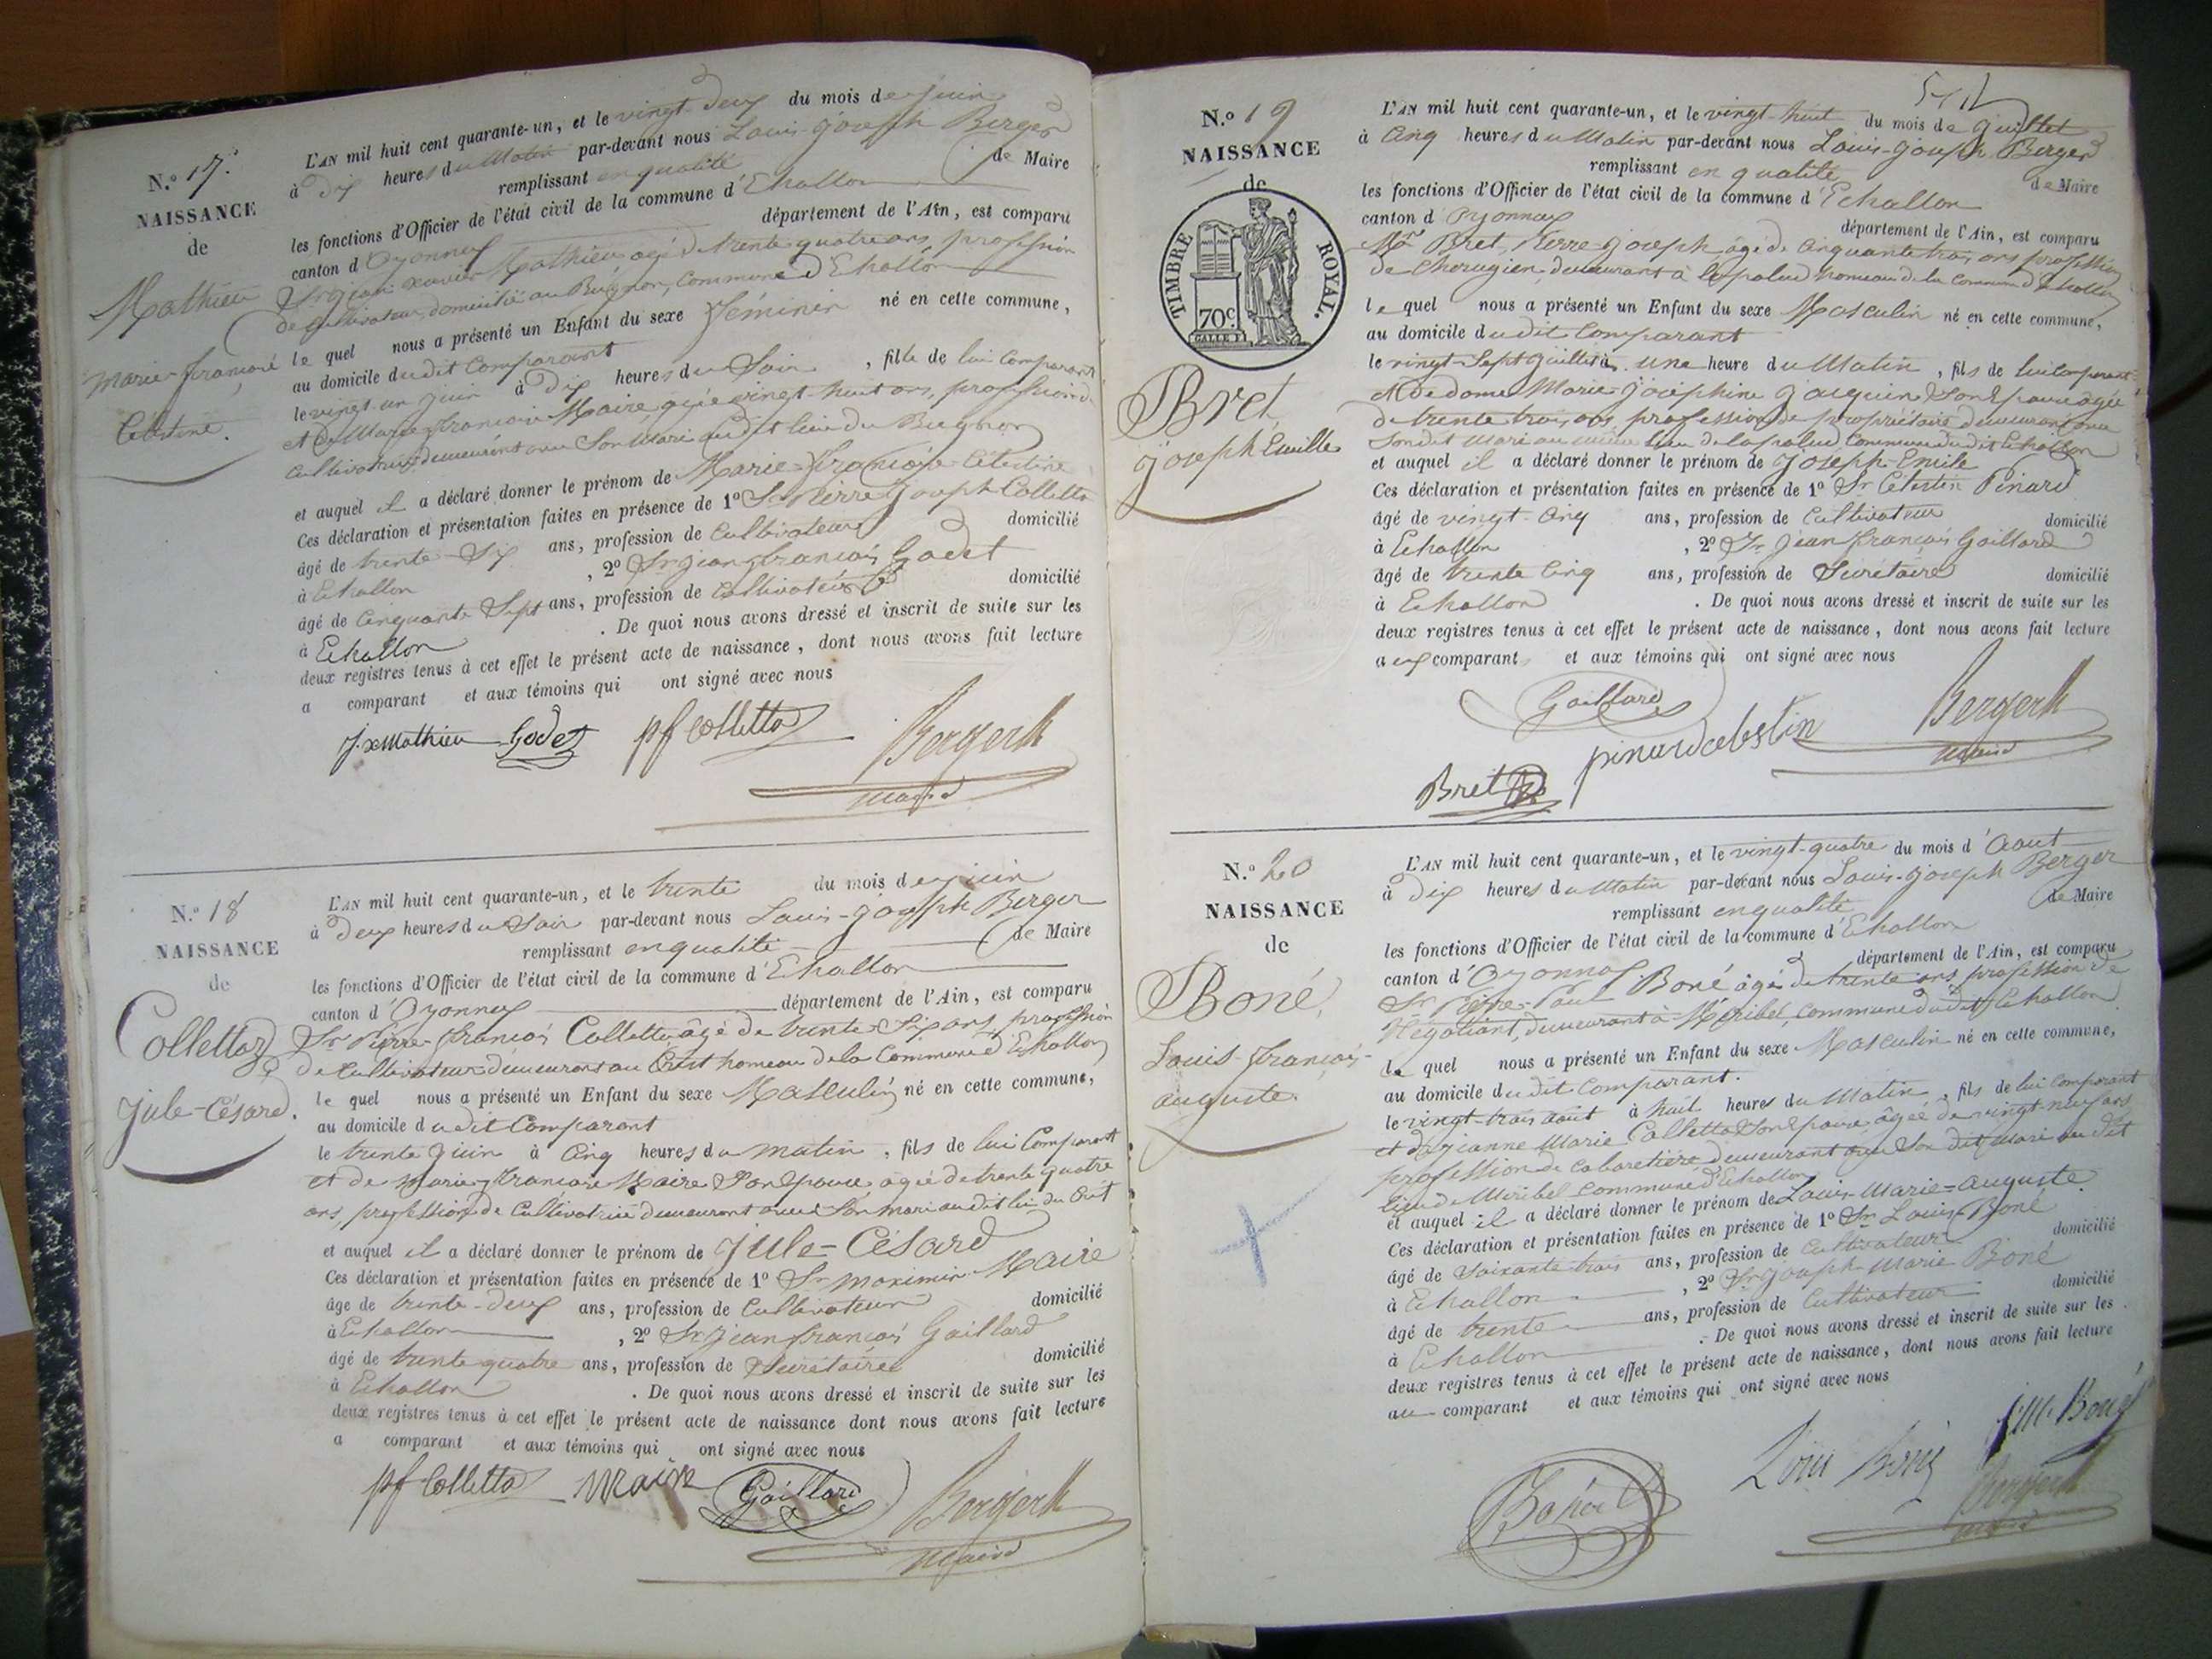 N.º 17.
NAISSANCE
de
Mathieu
Marie-françoise
Célestine.
L'AN mil huit cent quarante-un, et le vingt-deux du mois de juin
à Dix heures du Matin par-devant nous Louis-joseph Berger
remplissant en qualité de Maire
les fonctions d'Officier de l'état civil de la commune d'Echallon
canton d'Oyonnax département de l'Ain, est comparu
Sr jean xavier Mathieu agé de trente quatre ans, profession
de Cultivateur, domicilié au Bugnon, Commune d'Echallon
le quel nous a présenté un Enfant du sexe féminin né en cette commune,
au domicile dudit Comparant
le vingt-un juin à Dix heures du Soir, fille de lui Comparant
et de Marie-françoise Maire agée vingt-huit ans, profession de
Cultivatrice, demeurant avec Son Mari audit lieu du Bugnon
et auquel il a déclaré donner le prénom de Marie-françoise-Célestine
Ces déclaration et présentation faites en présence de 1º Sr Pierre joseph Collettaz
âgé de trente-Six ans, profession de Cultivateur domicilié
à Echallon, 2º Sr jean françois Godet
âgé de Cinquante Sept ans, profession de Cultivateur domicilié
à Echallon. De quoi nous avons dressé et inscrit de suite sur les
deux registres tenus à cet effet le présent acte de naissance, dont nous avons fait lecture
a comparant et aux témoins qui ont signé avec nous
j.x Mathieu Godet pf Collettaz Berger
maire
N.º 18
NAISSANCE
de
Collettaz
Jule-César.
L'AN mil huit cent quarante-un, et le trente du mois de juin
à Deux heures du Soir par-devant nous Louis-joseph Berger
remplissant en qualité de Maire
les fonctions d'Officier de l'état civil de la commune d'Echallon
canton d'Oyonnax département de l'Ain, est comparu
Sr Pierre-françois Collettaz âgé de trente-Six ans, profession
de Cultivateur demeurant au Crêt hameau de la Commune d'Echallon
le quel nous a présenté un Enfant du sexe Masculin né en cette commune,
au domicile dudit Comparant
le trente juin à Cinq heures du matin, fils de lui Comparant
et de Marie-françoise Maire Son Epouse, agée de trente quatre
ans, profession de Cultivatrice demeurant avec Son mari audit lieu du Crêt
et auquel il a déclaré donner le prénom de Jule-César
Ces déclaration et présentation faites en présence de 1º Sr Maximin Maire
âgé de trente-deux ans, profession de Cultivateur domicilié
à Echallon, 2º Sr jean françois Gaillard
âgé de trente quatre ans, profession de Secrétaire domicilié
à Echallon. De quoi nous avons dressé et inscrit de suite sur les
deux registres tenus à cet effet le présent acte de naissance dont nous avons fait lecture
a comparant et aux témoins qui ont signé avec nous
pf Collettaz Maire Gaillard Berger
maire
N.º 19
NAISSANCE
de
TIMBRE ROYAL.
70c.
Bret
joseph Emille
L'AN mil huit cent quarante-un, et le vingt-huit du mois de juillet
à Cinq heures du Matin par-devant nous Louis-joseph Berger
remplissant en qualité de Maire
les fonctions d'Officier de l'état civil de la commune d'Echallon
canton d'Oyonnax département de l'Ain, est comparu
Mr Bret, Pierre-joseph âgé de Cinquante trois ans profession
de Cherugien, demeurant à lapalud hameau de la Commune d'Echallon
le quel nous a présenté un Enfant du sexe Masculin né en cette commune,
au domicile dudit Comparant
le vingt-Sept juillet à une heure du Matin, fils de lui Comparant
et de dame Marie-joséphine jacquin Son Epouse agée
de trente trois ans, profession de propriétaire demeurant avec
Son dit Mari au même lieu de lapalud Commune dudit Echallon
et auquel il a déclaré donner le prénom de Joseph-Emile
Ces déclaration et présentation faites en présence de 1º Sr Célestin Pinard
âgé de vingt-Cinq ans, profession de Cultivateur domicilié
à Echallon, 2º Sr Jean françois Gaillard
âgé de trente Cinq ans, profession de Secrétaire domicilié
à Echallon. De quoi nous avons dressé et inscrit de suite sur les
deux registres tenus à cet effet le présent acte de naissance, dont nous avons fait lecture
aux comparant et aux témoins qui ont signé avec nous
Gaillard Berger
maire
Bret pinard celestin
N.º 20
NAISSANCE
de
Boné,
Louis-françois-
auguste.
L'AN mil huit cent quarante-un, et le vingt-quatre du mois d'Aout
à Dix heures du Matin par-devant nous Louis-joseph Berger
remplissant en qualité de Maire
les fonctions d'Officier de l'état civil de la commune d'Echallon
canton d'Oyonnax département de l'Ain, est comparu
Sr Pierre-Paul Boné âgé de trente ans profession de
Négotiant, demeurant à Miribel, commune dudit Echallon
le quel nous a présenté un Enfant du sexe Masculin né en cette commune,
au domicile dudit Comparant.
le vingt-trois aout à huit heures du Matin, fils de lui Comparant
et de jeanne Marie Collettaz Son Epouse âgée de vingt-neuf ans
profession de Cabaretière demeurant avec Son dit Mari au dit
lieu de Miribel Commune d'Echallon
et auquel il a déclaré donner le prénom de Louis-Marie-auguste.
Ces déclaration et présentation faites en présence de 1º Sr Louis Boné
âgé de Soixante-trois ans, profession de Cultivateur domicilié
à Echallon, 2º Sr joseph-Marie Boné
âgé de trente ans, profession de Cultivateur domicilié
à Echallon. De quoi nous avons dressé et inscrit de suite sur les
deux registres tenus à cet effet le présent acte de naissance, dont nous avons fait lecture
au comparant et aux témoins qui ont signé avec nous
Louis Boné Boné
Berger
maire